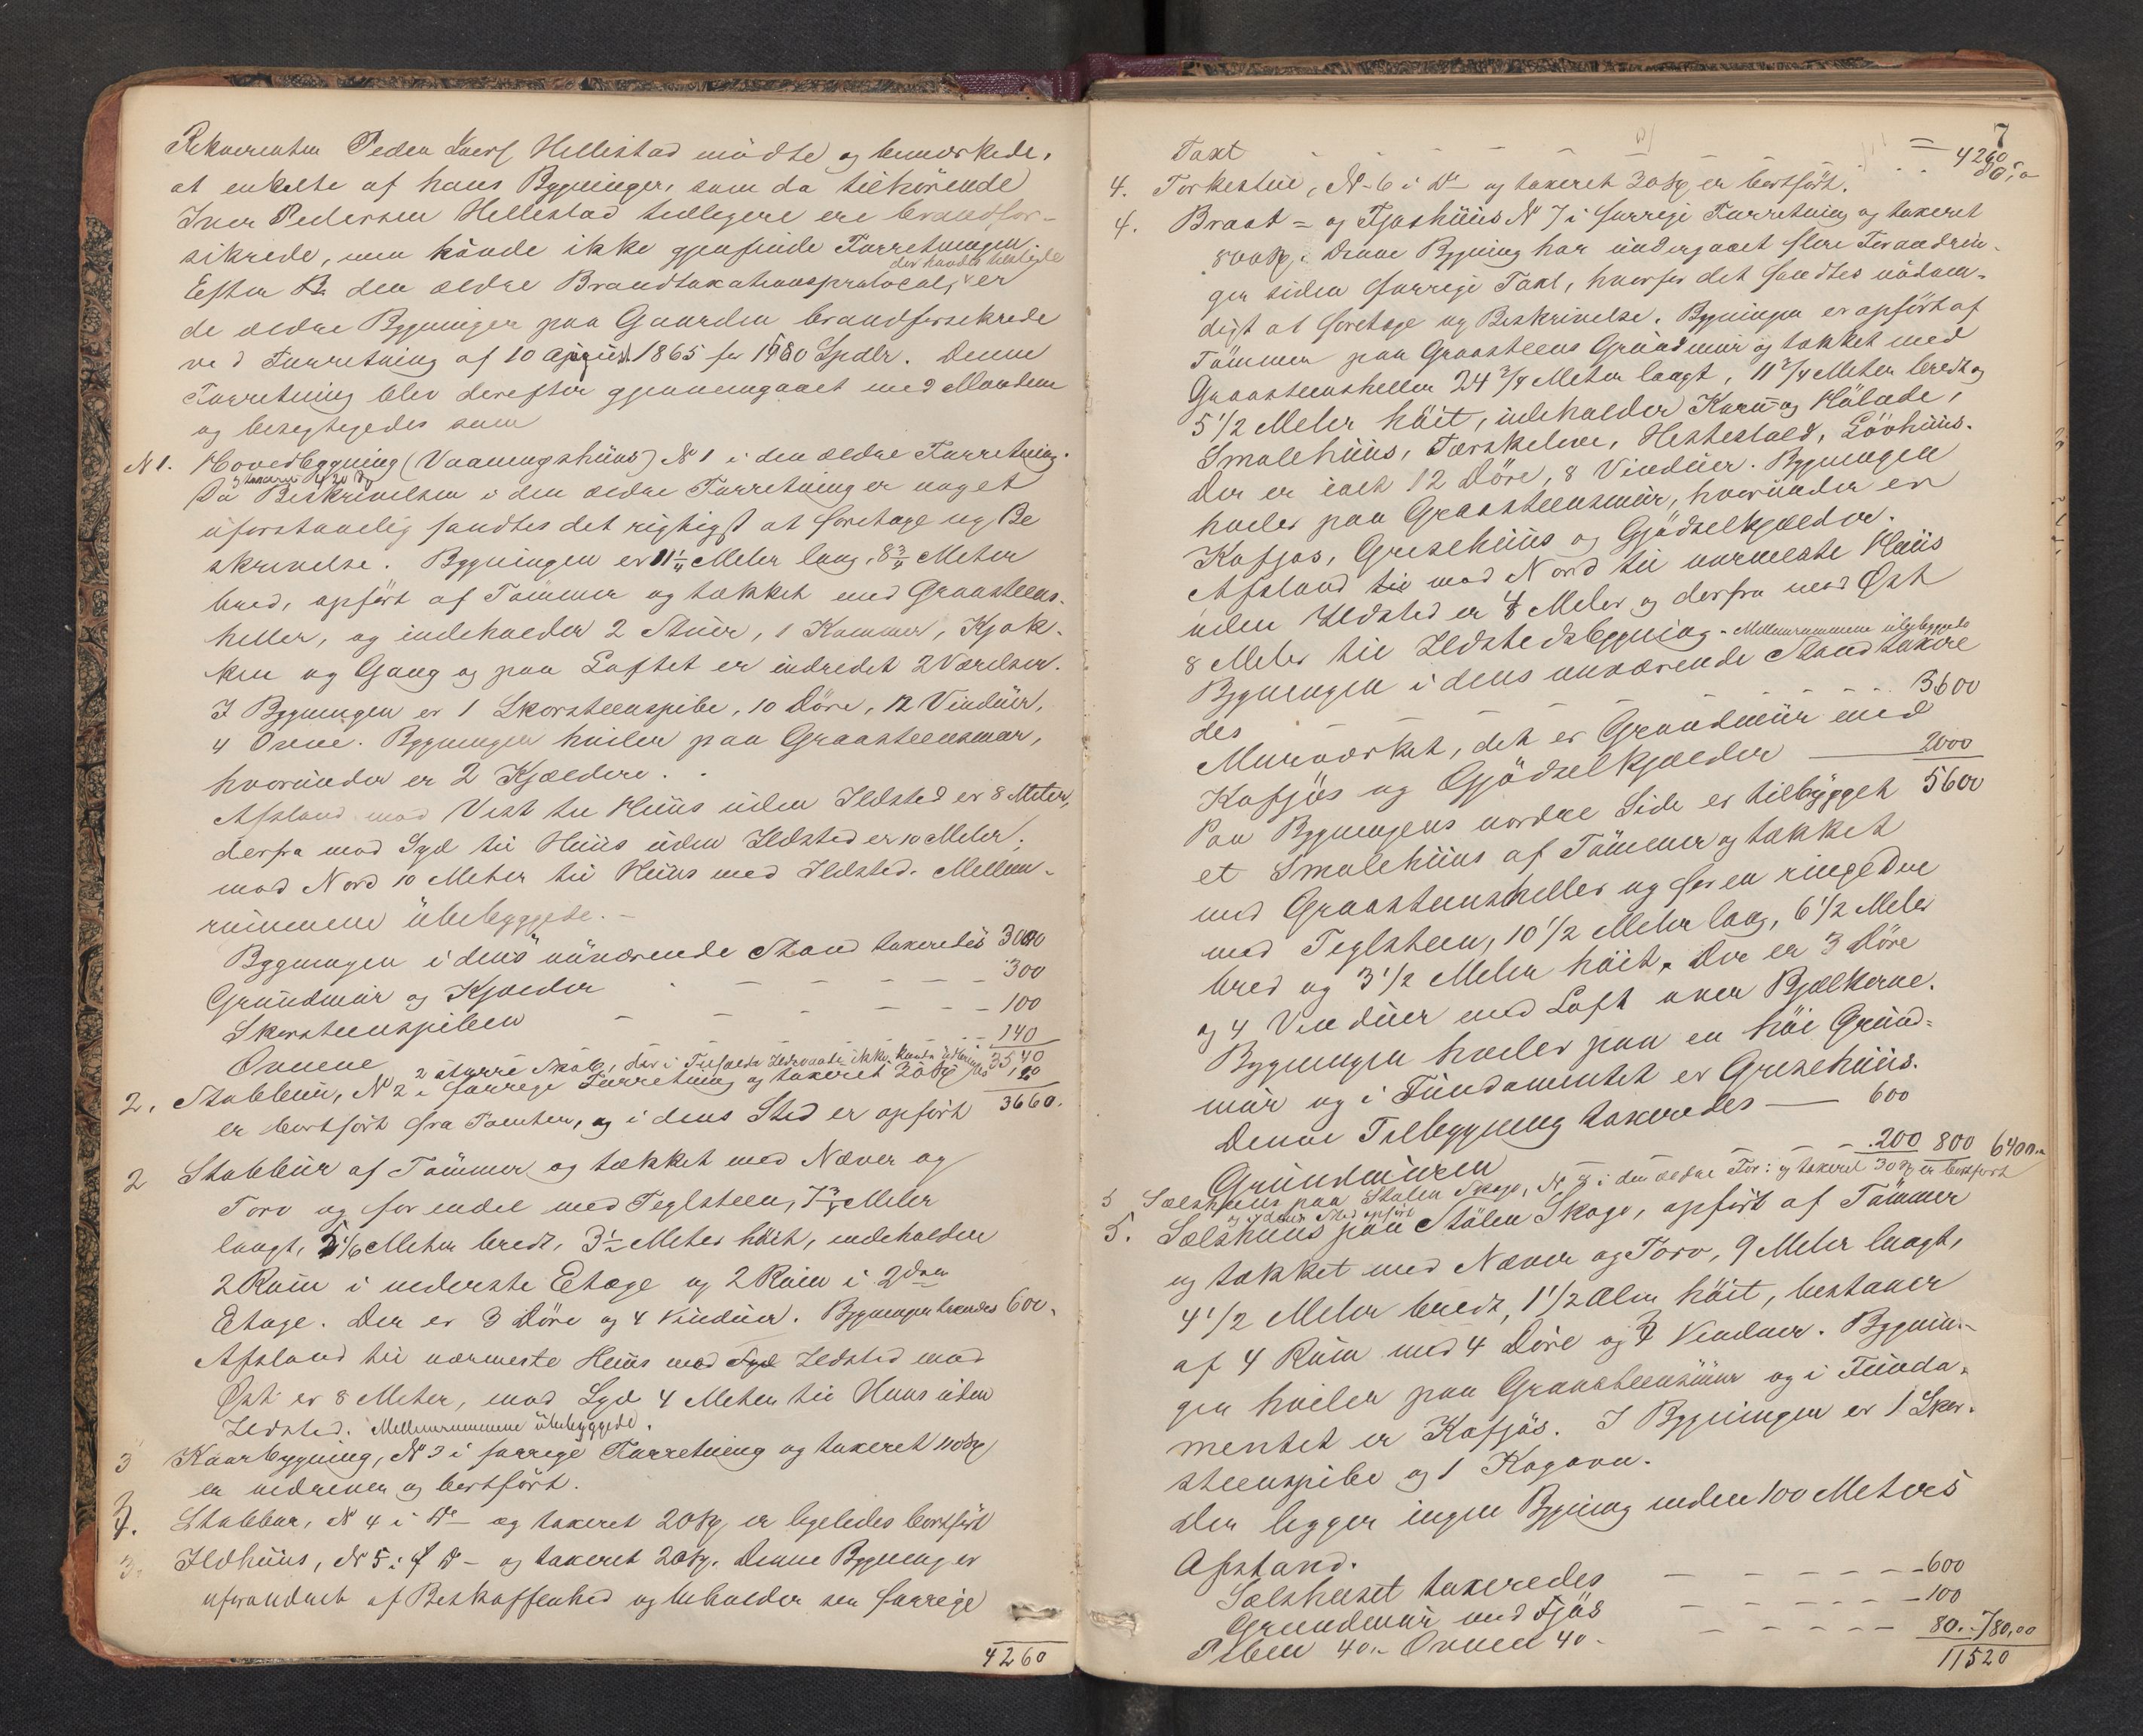 Rekvirenten Peder Iversen Hellistad mødte og bemærkede,
at enkelte af hans Bygninger, som da tilhørende
Iver Pedersen Hellestad tidligere ere brandfor-
sikrede, men kunde ikke gjenfinde Forretningen.
der havdes tilstede
Efter den ældre Brandtaxationsprotocol, er
de ældre Bygninger paa Gaarden brandforsikrede
ved Forretning af 10 August 1865 for 1180 Spdlr. Denne
Forretning blev derefter gjennemgaaet med Manden
og besigtigedes som
N 1. Hovedbygning (Vaaningshuus) N 1 i den ældre Forretning.
Da Beskrivelsen i den ældre Forretning er noget
uforstaaelig fandtes det rigtigst at foretage ny Be
skrivelse. Bygningen er 11 1/4 Meter lang, 8 3/4 Meter
bred, opført af Tømmer og tækket med Graasteens-
heller, og indeholder 2 Stuer, 1 Kammer, Kjøk-
ken og Gang og paa Loftet er indredet 2 Værelser.
I Bygningen er 1 Skorsteenspibe, 10 Døre, 12 Vinduer,
4 Ovne. Bygningen hviler paa Graasteensmur,
hvorunder er 2 Kjældere.
Afstand mod Vest til Huus uden Ildsted er 8 Meter,
derfra mod Syd til Huus uden Ildsted er 10 Meter;
mod Nord 10 Meter til Huus med Ildsted. Mellem-
rummene ubebyggede. -
Bygningen i dens nuværende Stand taxeredes 3000
Grundmur og Kjælder - - - - - 300
Skorsteenspiben - - - - - 100
Ovnene - - - - - 140
2 større Skabe, der i Tilfælde Ildsvaade ikke kunde 3540
2. Stabbuur, N 2 i forrige Forretning og taxeret 30 Spd 120
er bortført fra Tomten, og i dens Sted er opført 3660.
2 Stabbuur af Tømmer og tækket med Næver og
Torv og for endel med Teglsteen, 7 3/4 Meter
langt, 5 1/6 Meter bredt, 3 1/2 Meter høit, indeholder
2 Rum i nederste Etage og 2 Rum i 2den
Etage. Der er 3 Døre og 4 Vinduer. Bygningen taxeredes 600,
Afstand til nærmeste Huus med Ildsted mod
Øst er 8 Meter, mod Syd 4 Meter til Huus uden
Ildsted. Mellemrummene ubebyggede.
3 Kaarbygning, N 3 i forrige Forretning og taxeret 110 Spd
er nedreven og bortført.
4. Stabbur, N 4 i Do - og taxeret 20 Spd, er ligeledes bortført
3. Ildhuus, N 5 i Do - og taxeret 20 Spd. Denne Bygning er
uforandret af Beskaffenhed og beholder sin forrige
4260
7
Taxt - - - - - = 4260
80,"
4. Torkestue, N 6 i Do - og taxeret 30 Spd, er bortført.
4. Braat- og Fjøshuus N 7 i forrige Forretning og taxeret
800 Spd. Denne Bygning har undergaaet flere Forandrin-
ger siden forrige Taxt, hvorfor det fandtes nødven-
digt at foretage ny Beskrivelse. Bygningen er opført af
Tømmer paa Graasteens Grundmur og tækket med
Graasteensheller 24 3/4 Meter langt, 11 2/4 Meter bredt og
5 1/2 Meter høit, indeholder Korn- og Hølade,
Smalehuus, Tærskeloe, Hestestald, Løvhuus.
Der er ialt 12 Døre, 8 Vinduer. Bygningen
hviler paa Graasteensmur, hvorunder er
Kofjøs, Grisehuus og Gjødselkjælder.
Afstand mod Nord til nærmeste Huus
uden Ildsted er 4 Meter og derfra mod Øst
8 Meter til Ildstedsbygning. Mellemrummene ubebyggede
Bygningen i dens nuværende Stand taxere
des - - - - - 3600
Murværket, det er Grundmur med
Kofjøs og Gjødselkjælder — 2000
Paa Bygningens nordre Side er tilbygget 5600
et Smalehuus af Tømmer og tækket
med Graasteensheller og for en ringe Deel
med Teglsteen, 10 1/2 Meter lang, 6 1/2 Meter
bred og 3 1/2 Meter høit. Der er 3 Døre
og 4 Vinduer med Loft over Bjælkerne.
Bygningen hviler paa en høi Grund-
mur og i Fundamentet er Grisehuus.
Denne Tilbygning taxeredes — 600
Grundmuren - - - 200 800 6400.
5 Sælshuus paa Stølen Skogo, N 8 i den ældre For: og taxeret 30 Spd er bortført
og i dens Sted opført
5. Sælshuus paa Stølen Skogo, opført af Tømmer
og tækket med Næver og Torv, 9 Meter langt,
4 1/2 Meter bredt, 1 1/2 Alen høit, bestaaer
af 4 Rum med 4 Døre og 4 Vinduer. Bygnin-
gen hviler paa Graasteensmuur og i Funda-
mentet er Kofjøs. I Bygningen er 1 Skor-
steenspibe og 1 Kogovn.
Der ligger ingen Bygning inden 100 Meters
Afstand.
Sælshuset taxeredes - - - - 600
Grundmur med Fjøs - - - - 100
Piben 40.- Ovnen 40 - - - - 80.- 780,00
11520